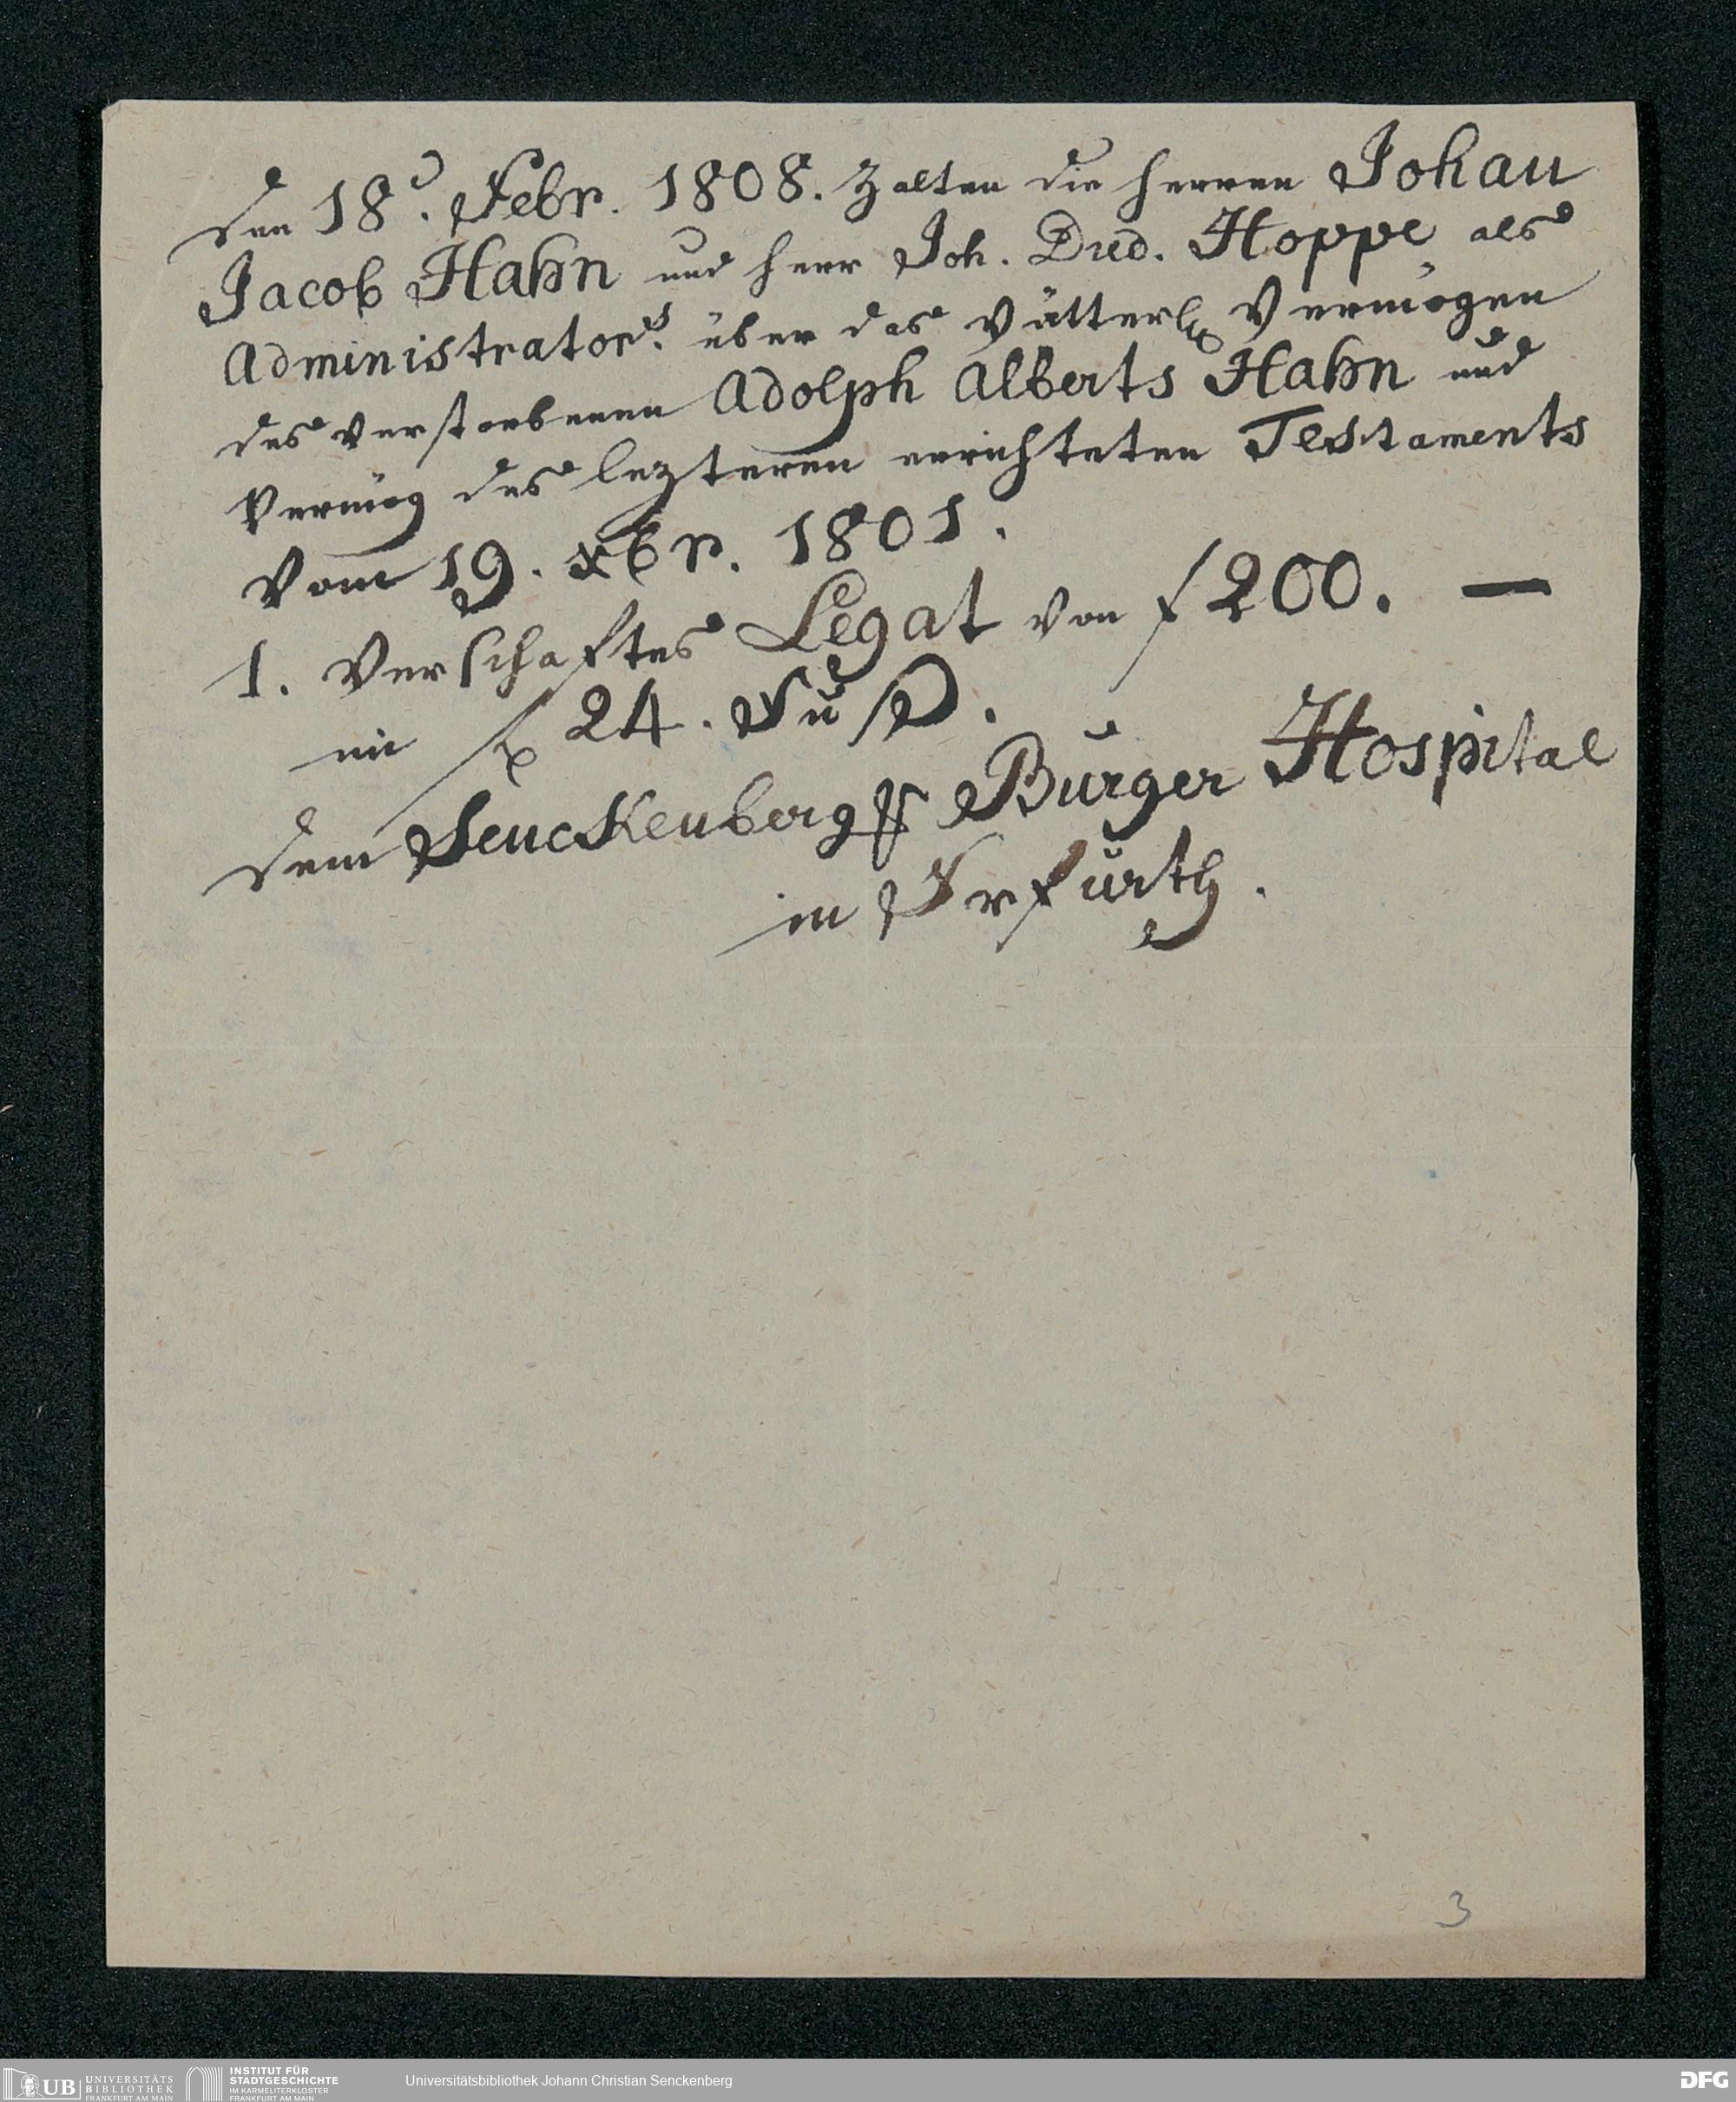 Den 18.ᵗ Febr. 1808. Zalten die Herren Johan
Jacob Hahn und Herr Joh. Dud. Hoppe als
Administrator.ˢ über das Vätterl. Vermögen
des verstorbenen Adolph Alberts Hahn und
Vermög des lezteren errichteten Testaments
Vom 19. xbr. 1801.
1. Verschaftes Legat von f 200. —
im f 24. Fuß.
dem Senckenberg. Bürger Hospital
in Frfurth.
3
UB UNIVERSITÄTS
BIBLIOTHEK
FRANKFURT AM MAIN
INSTITUT FÜR
STADTGESCHICHTE
IM KARMELITERKLOSTER
FRANKFURT AM MAIN
Universitätsbibliothek Johann Christian Senckenberg
DFG